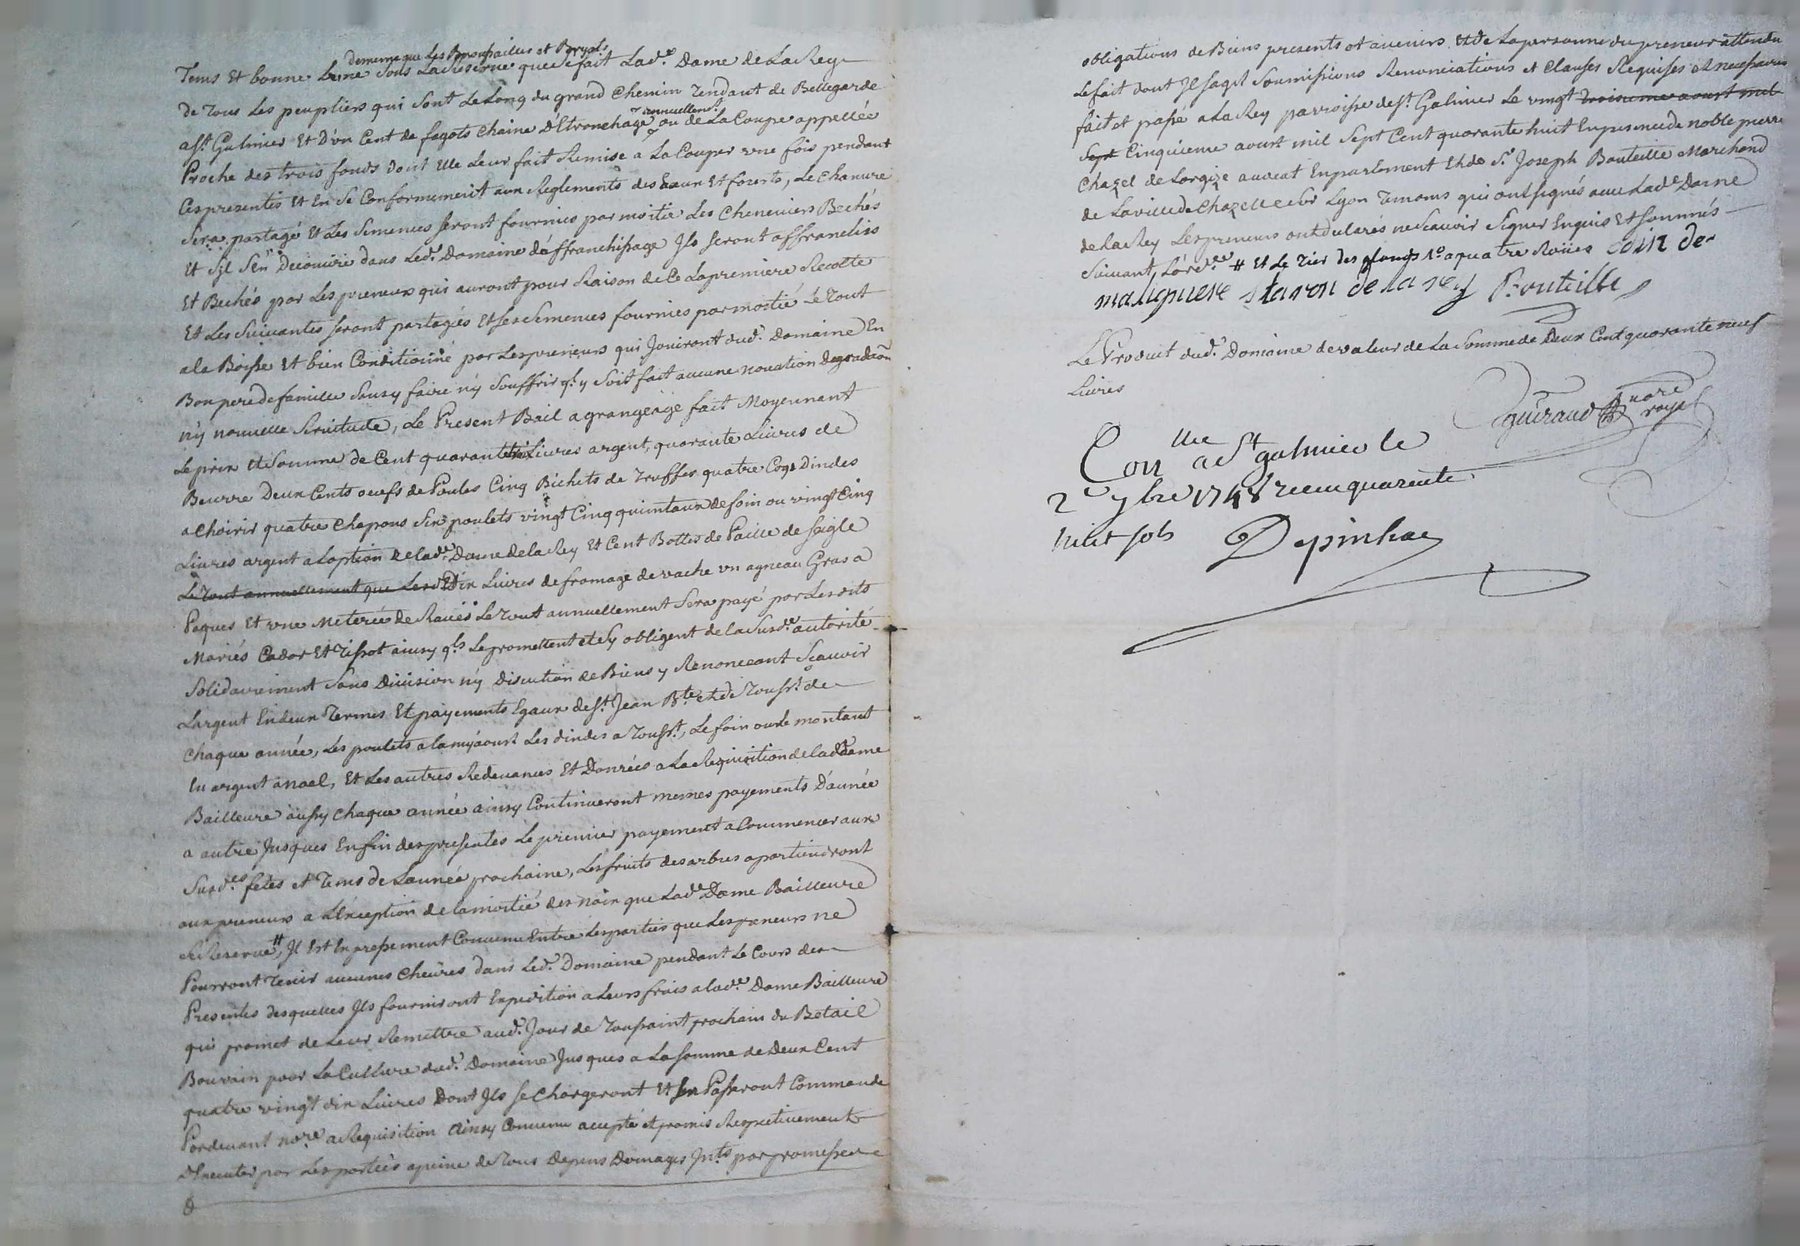 Dememe que Les Broussailles et
Tems Et bonne Lune Sous Lareserve que Se fait Lad.e Dame de La Rey
de Tous Les peupliers qui sont Le Long du grand Chemin Tendant de Bellegarde
annuellem.t
a S.t Galmier Et D'un Cent de fagots Chaine D'Etronchage ou de La Coupe appellée
Proche des trois fonds dont Elle Leur fait Remise a La Couper une fois pendant
Cespresentes Et En Se Conformement aux Reglements des Eaux Et forests, Le Chanvre
Sera partagé Et Les Semences Seront fournies par moitié Les Cheneviers Bechés
Et Sil S'En Decouvre dans Led.t Domaine d'affranchissage Ils Seront affranchis
Et Bechés par Les preneurs qui auront pour Raison de Ce Lapremiere Recolte
Et Les Suivantes Seront partagées Et Les Semences fournies par moitié Le Tout
a la Boisse Et bien Conditionné par Les preneurs qui Joüiront dud.t Domaine En
Bon pere de famille Sans y faire n'y Souffrir q.l y Soit fait aucune novation Degradation
n'y nouvelle Servitude, Le Present Bail a grangeage fait Moyennant
Le prix Et Somme de Cent quarante Livres argent, quarante Livres de
Beurre Deux Cents oeufs de Poules Cinq Bichets de Truffes quatre Coqs Dindes
a Choisir quatre Chapons Six poulets vingt Cinq quintaux de foin ou vingt Cinq
Livres argent a Loption de lad.e Dame de la Rey Et Cent Bottes de Paille de Seigle
Le Tout annuellement que Lesd. Et Dix Livres de fromage de vache un agneau Gras a
Paques Et une Meterée de Raves Le Tout annuellement Sera payé par Lesdits
Mariés Cador Et Tissot ainsy q.ls Le promettent et Sy obligent de la Susd.e autorité
Solidairement Sans Division n'y Discution de Biens y Renonceant Scavoir
Largent En deux Termes Et payements Egaux de S.t Jean B.te Et de Touss.t de
Chaque année, Les poulets a la my aoust Les dindes a Touss.t, Le foin ou le montant
En argent a Noel, Et Les autres Redevances Et Denrées a La Requisition de lad.e Dame
Bailleure aussy Chaque année ainsy Continueront memes payements D'année
a autre Jusques Enfin des presentes Le premier payement a Commencer aux
Susd.es fetes et Tems de Lannée prochaine, Les fruits des arbres apartiendront
aux preneurs a L'Exception de la moitié des noix que Lad.e Dame Bailleure
Se Reserve #, Il Est Expressement Convenu Entre Lesparties que Les preneurs ne
Pourront Tenir aucunes Chevres dans Led.t Domaine pendant Le Cours des
Presentes desquelles Ils fourniront Expedition a Leurs frais a lad.e Dame Bailleure
qui promet de Leur Remettre aud.t Jour de Toussaint prochain du Betail
Bouvain pour La Culture dud.t Domaine Jusques a La Somme de Deux Cent
quatre vingt dix Livres Dont Ils Se Chargeront Et En Passeront Commande
Pardevant no.re a Requisition ainsy Convenu accepté et promis Respectivement
D'Executer par Les parties a peine de Tous Depens Domages Int.ts par promesses
&
obligations de Biens presents et avenirs Et de Lapersonne du preneur attendu
Le fait dont Il Sagit Soumissions Renonciations et Clauses Requises et necessaires
fait et passé a La Rey parroisse de S.t Galmier Le vingt troisieme aoust mil
Sept Cinquieme aoust mil Sept Cent quarante huit En presence de noble pierre
Chazel de Lorgize avocat En parlement Et de S.r Joseph Bouteille Marchand
de La ville de Chazelle Sur Lyon Temoins qui ont Signés avec Lad.e Dame
de La Rey Les preneurs ont declarés ne Scavoir Signer Enquis Et Sommés
Suivant Lord.ce # Et Le Tier des Roües Coin de
maligniere staron de la rey Bouteille
Le Produit dud.t Domaine de valeur de La Somme de Deux Cent quarante neuf
Livres
guiraud no.re royal
Con.lle a S.t galmier le
2.e 7bre 1748 recu quarente
huit sols Depinhac